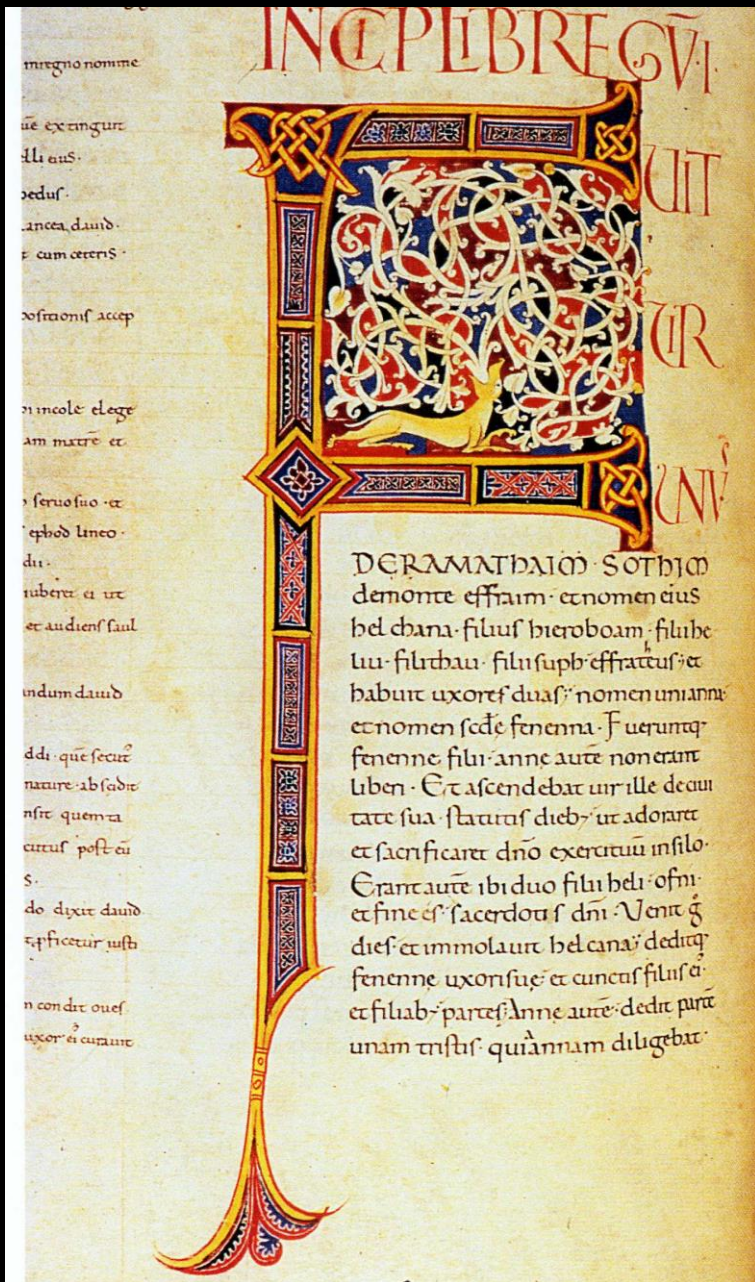 in regno nomine
uē extinguit
elli eius ·
pedus ·
lancea david ·
cum ceteris ·
positionis accep
incole elege
am matrē et
servo suo · et
ephod lineo ·
dii ·
iuberet ei ut
et audiens saul
andum david
ddi · que
nature · abscidit
quem ta
post eū
S ·
do dixit david
t; pficetur iusti
n condit oves
uxor ei curavit
INCIP LIB REGV̄ · I ·
F
UIT
UIR
UNVS
DERAMATHAIM · SOTHIM
demonte effraim · etnomen eius
helchana · filius hieroboam · filii he
liu · filii hau · filii suph · effrateus; et
habuit uxores duas; nomen uni anna
et nomen scdē fenenna · Fuerunt q;
fenenne filii · anne autē non erant
liberi · Et ascendebat uir ille deciui
tate sua · statutis dieb; ut adoraret
et sacrificaret dn̄o exercituū insilo ·
Erant autē ibi duo filii heli · ofni ·
et finees · sacerdotis dn̄i · Venit g̊
dies et immolauit helcana; dedit q;
fenenne uxori sue; et cunctis filiis ei ·
et filiab; partes; Anne autē · dedit partē
unam tristis · quiannam diligebat ·